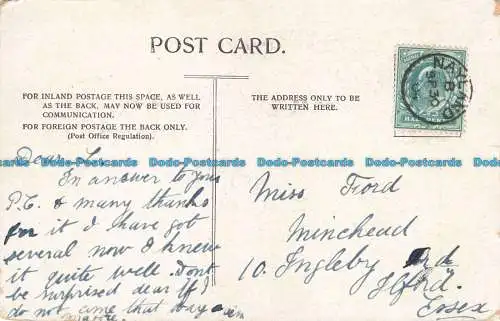 POST CARD.
FOR INLAND POSTAGE THIS SPACE, AS WELL
AS THE BACK, MAY NOW BE USED FOR
COMMUNICATION.
FOR FOREIGN POSTAGE THE BACK ONLY.
(Post Office Regulation).
THE ADDRESS ONLY TO BE
WRITTEN HERE.
NAYLAND
HALFPENNY
Dear
In answer to your
P.C. & many thanks
for it I have got
several now I knew
it quite well. Dont
be surprised dear if I
do not come that way
Miss Ford
Minehead
10. Ingleby Rd
Ilford.
Essex
Bodo-Postcards Bodo-Postcards Bodo-Postcards Bodo-Postcards